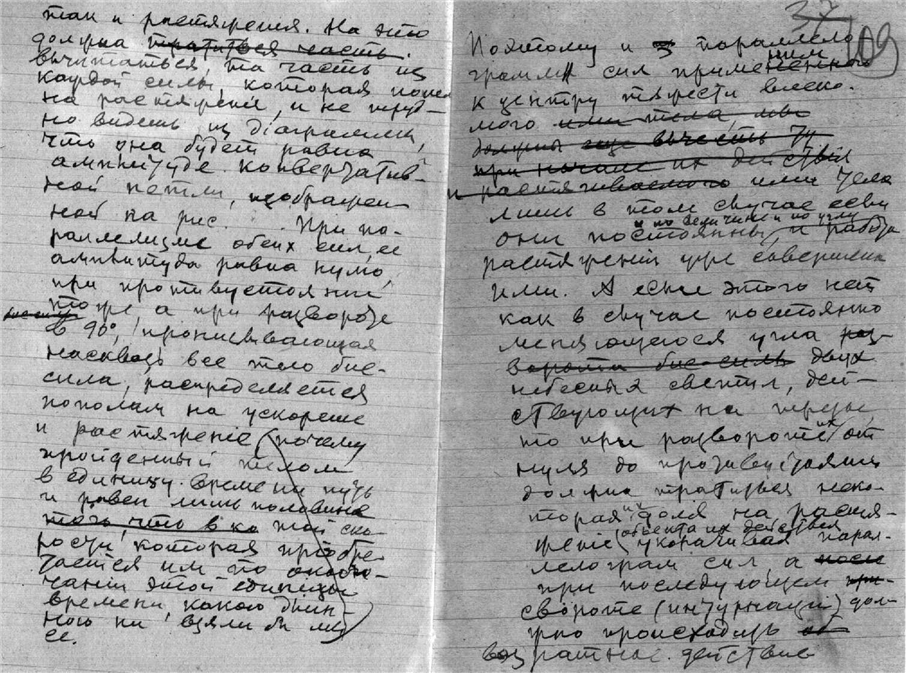 так и растяжения. На это
должна тратиться часть.
вычитаться, та часть из
каждой силы, которая
на растяжение, и не труд-
но видеть из діаграммы,
что она будет равна
амплитуде конвертатив-
ной петли, изображен-
ной на рис . При па-
раллелизме обеих сил, ее
амплитуда равна нулю,
при противустоянии
тоже а при развороте
в 90°, пронизывающая
насквозь все тело бие-
сила, распределяется
пополам на ускорение
и растяженіе (почему
пройденный телом
в единицу времени путь
и равен лишь половине
того, что в ко той ско-
рости, которая приобре-
тается им по оконо-
чании этой единицы
времени, какою длин-
ною ни взяли бы мы
ее.
37
109
Поэтому и з параллело
грамм сил примененного
к центру тяжести влеко-
мого ими тела, мы
должны еще вычесть ту
при начале их действия
и растягиваемого ими тела
лишь в том случае если
и по величине и по углу
они постоянны, и работа
растяжения уже совершена
ими. А если этого нет
как в случае постоянно
меняющегося угла раз-
ворота бие-силь двух
небесных светил, дей-
ствующих на
то при развороте их от
нуля до противустояния
должна тратиться неко-
торая их доля на растя-
жение объекта их действия
укорачивая парал-
лелограм сил, а после
при последующем при-
свороте (интурнации) дол-
жно происходить об
возвратное действие